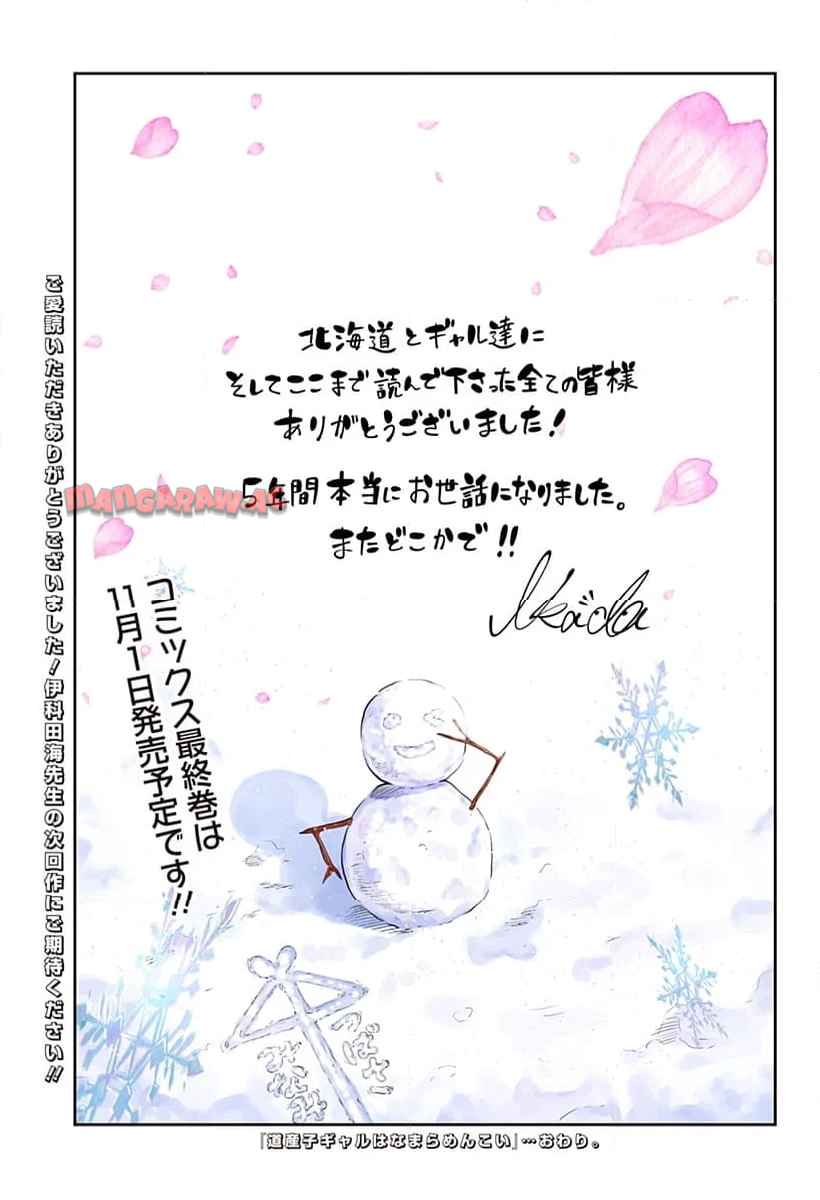 北海道とギャル達に
そしてここまで読んで下さった全ての皆様
ありがとうございました!
5年間本当にお世話になりました。
またどこかで!!
Ikada
MANGARAW
コミックス最終巻は
11月1日発売予定です!!
つばさ
みなみ
ご愛読いただきありがとうございました!伊科田海先生の次回作にご期待ください!!
『道産子ギャルはなまらめんこい』…おわり。